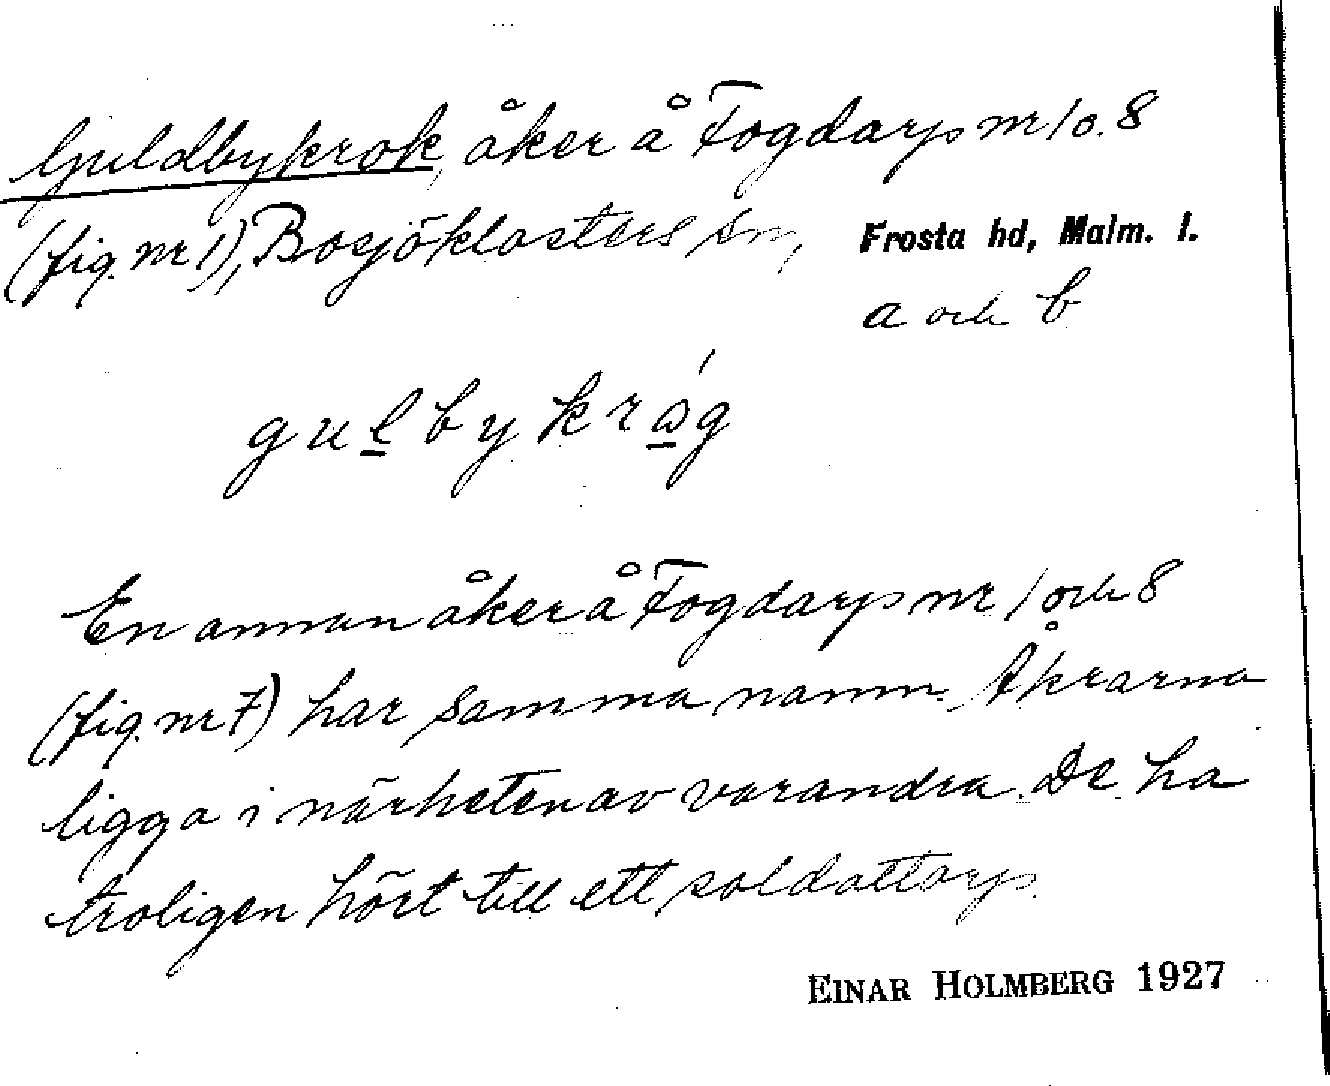 Guldbykrok, åker å Fogdarp nr 1 o. 8
(fig. nr 1), Bosjöklosters sn, Frosta hd, Malm. l.
a och b
gulbykråg
En annan åker å Fogdarps nr 1 och 8
(fig. nr 7) har samma namn. Åkrarna
ligga i närheten av varandra. De ha
troligen hört till ett soldattorp.
EINAR HOLMBERG 1927